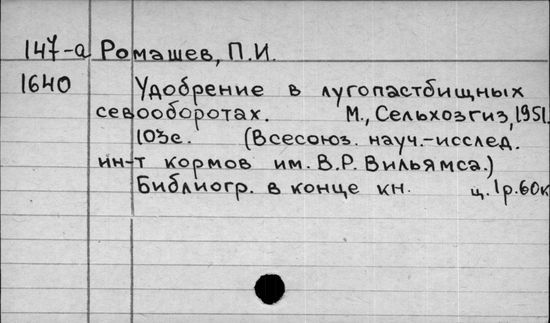 147-а Ромашев, П.И.
1640 Удобрение в лугопастбищных
севооборотах. М., Сельхозгиз, 1951.
103с. (Всесоюз. науч.-исслед.
ин-т кормов им. В.Р. Вильямса.)
Библиогр. в конце кн. ц. 1р.60к